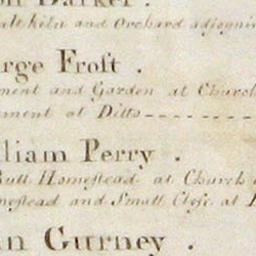 Barker.
alt kiln and Orchard adjoynin
rge Froft .
ment and Garden at Church
nment at Ditto
lliam Perry .
Butt Homestead at Church
mestead and Small Close at
n Gurney .